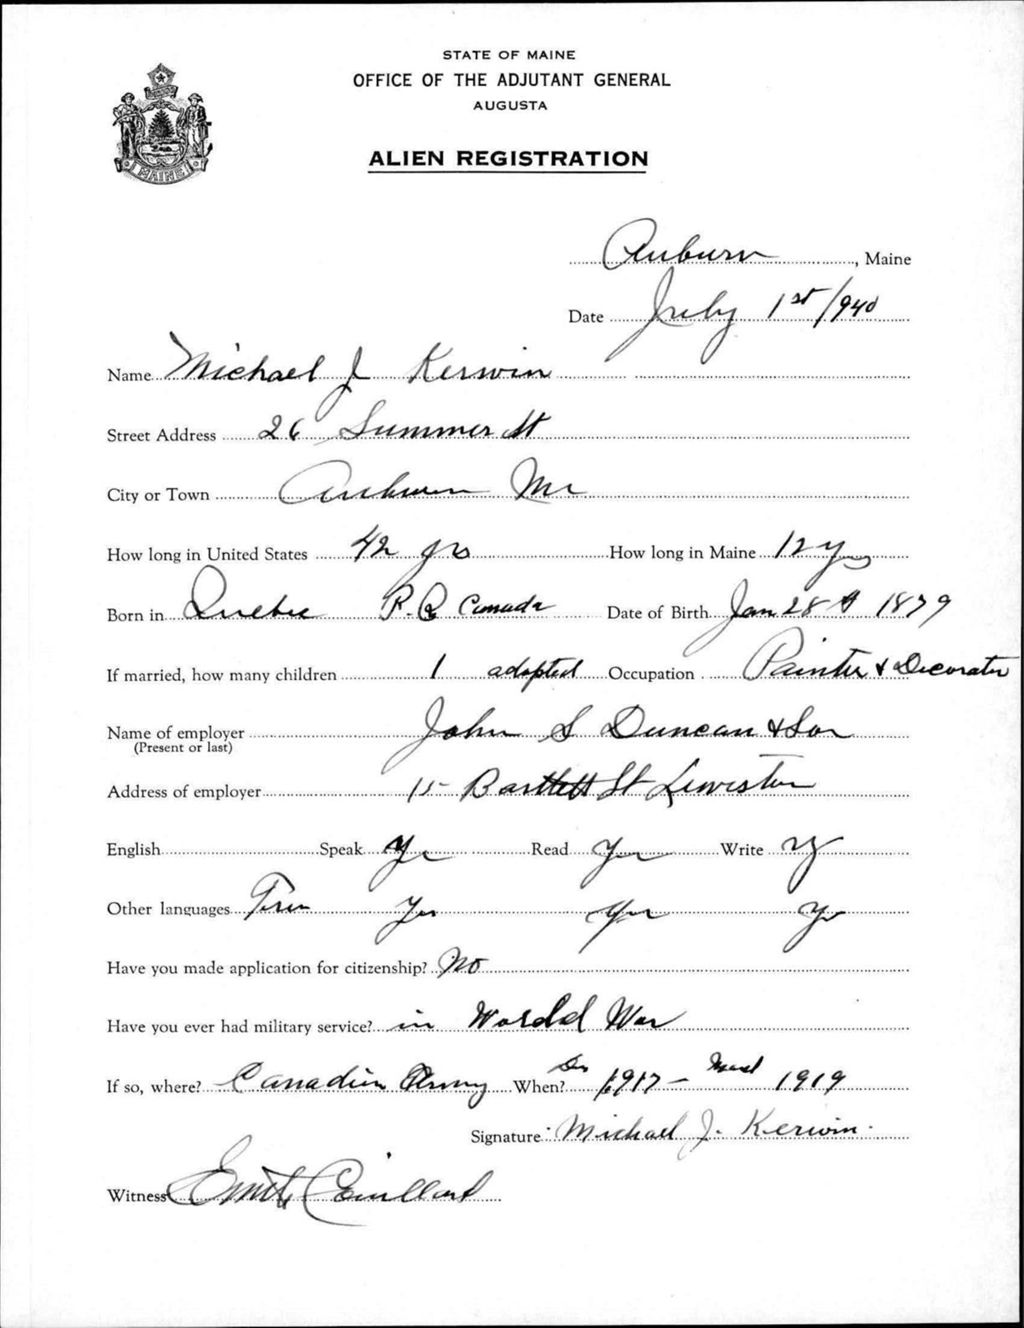 STATE OF MAINE
OFFICE OF THE ADJUTANT GENERAL
AUGUSTA
MAINE
ALIEN REGISTRATION
Auburn, Maine
Date July 1st 1940
Name Michael J Kerwin
Street Address 26 Summer St
City or Town Auburn Me
How long in United States 42 yrs How long in Maine 12 yrs
Born in Quebec P.Q Canada Date of Birth Jan 28 1879
If married, how many children 1 adopted Occupation Painter & Decorator
Name of employer John S Duncan & Son
(Present or last)
Address of employer 15 Bartlett St Lewiston
English Speak Yes Read Yes Write Y
Other languages Yes Yes Yes
Have you made application for citizenship? No
Have you ever had military service? in World War
If so, where? Canadian Army When? 1917 - 1919
Signature Michael J. Kerwin
Witness